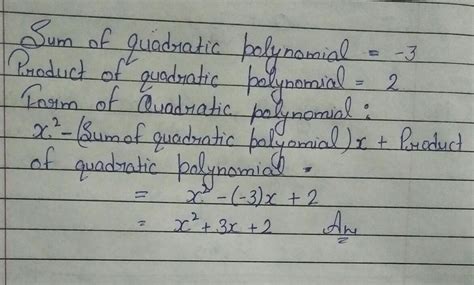 Sum of quadratic polynomial = -3
Product of quadratic polynomial = 2
Form of Quadratic polynomial :
x² - (Sum of quadratic polyomial) x + Product
of quadratic polynomial =
= x² - (-3)x + 2
= x² + 3x + 2 An